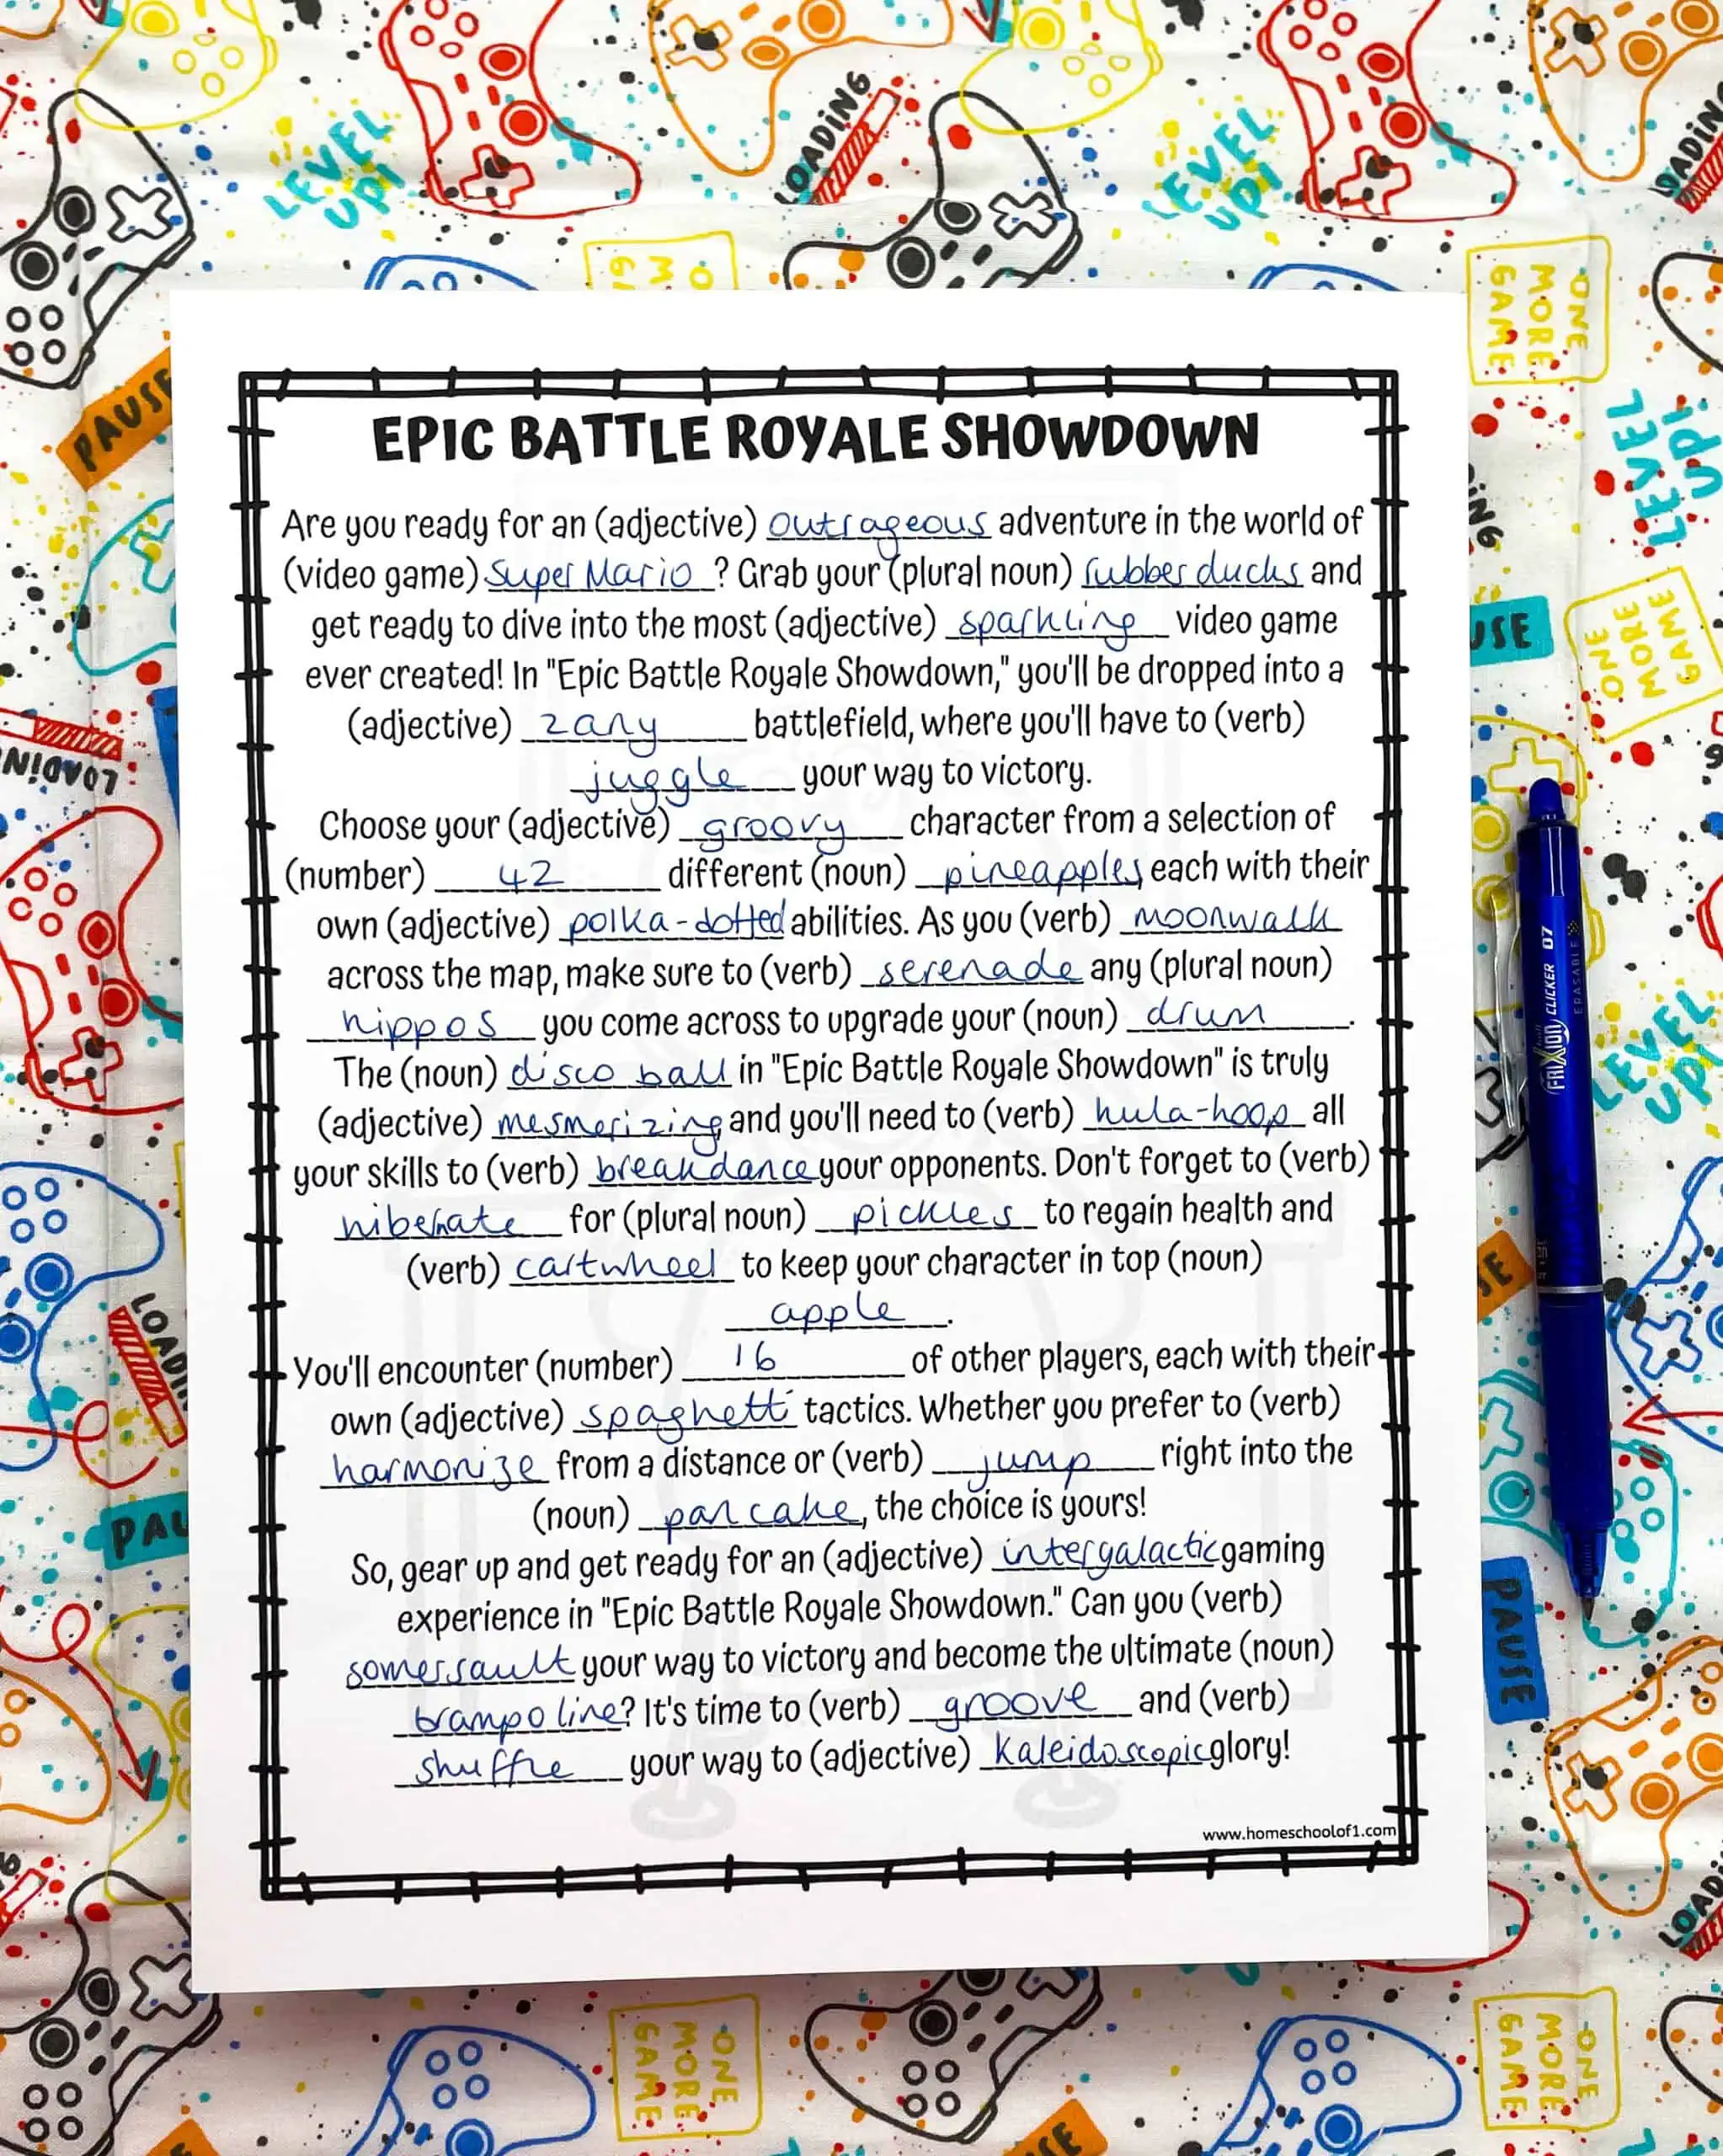 LEVEL UP!
LOADING
LEVEL UP!
LOADING
ONE MORE GAME
PAUSE
EPIC BATTLE ROYALE SHOWDOWN
Are you ready for an (adjective) outrageous adventure in the world of
(video game) Super Mario ? Grab your (plural noun) rubber ducks and
get ready to dive into the most (adjective) sparkling video game
ever created! In "Epic Battle Royale Showdown," you'll be dropped into a
(adjective) zany battlefield, where you'll have to (verb)
juggle your way to victory.
Choose your (adjective) groovy character from a selection of
(number) 42 different (noun) pineapples, each with their
own (adjective) polka-dotted abilities. As you (verb) moonwalk
across the map, make sure to (verb) serenade any (plural noun)
hippos you come across to upgrade your (noun) drum.
The (noun) disco ball in "Epic Battle Royale Showdown" is truly
(adjective) mesmerizing and you'll need to (verb) hula-hoop all
your skills to (verb) breakdance your opponents. Don't forget to (verb)
hibernate for (plural noun) pickles to regain health and
(verb) cartwheel to keep your character in top (noun)
apple.
You'll encounter (number) 16 of other players, each with their
own (adjective) spaghetti tactics. Whether you prefer to (verb)
harmonize from a distance or (verb) jump right into the
(noun) pancake, the choice is yours!
So, gear up and get ready for an (adjective) intergalactic gaming
experience in "Epic Battle Royale Showdown." Can you (verb)
somersault your way to victory and become the ultimate (noun)
trampoline? It's time to (verb) groove and (verb)
shuffle your way to (adjective) kaleidoscopic glory!
www.homeschoolof1.com
LEVEL UP!
ONE MORE GAME
LOADING
FRIXION CLICKER 07
ERASABLE
LEVEL UP!
LOADING
PAUSE
ONE MORE GAME
ONE MORE GAME